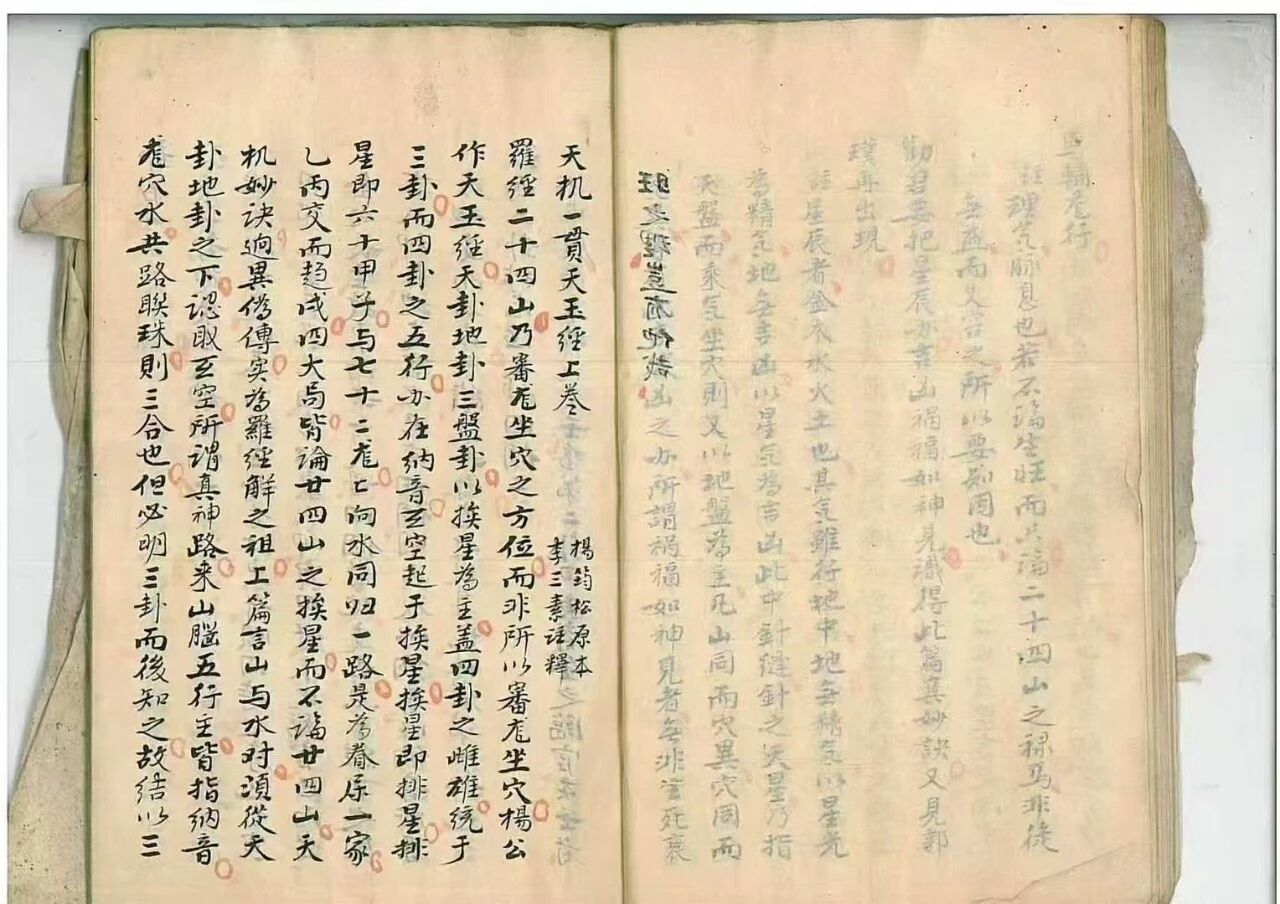 輔龙行
註理气脉息也若不論生旺而只論二十四山之禄马非徒
無益而又害之所以要知因也
勸君要把星辰办吉山祸福如神見識得此篇真妙訣又見郭
璞再出現
註星辰者金木水火土也其气雖行地中地無精气以星光
為精气地無吉凶以星气為吉凶此中針縫針之天星乃指
盤而乘气坐穴則又以地盤為主凡山同而穴異穴同而
凶之办所謂祸福如神見者無非生死衰
旺之理豈有他哉
天机一貫天玉經上卷
楊筠松原本
李三素註釋
羅經二十四山乃審龙坐穴之方位而非所以審龙坐穴楊公
作天玉經天卦地卦三盤卦以挨星為主盖四卦之雌雄統于
三卦而四卦之五行办在納音玄空起于挨星挨星即排星排
星即六十甲子与七十二龙匕向水同归一路是為眷属一家
乙丙交而趋戌四大局皆論廿四山之挨星而不論廿四山天
机妙诀迥異偽傳实為羅經解之祖上篇言山与水对須從天
卦地卦之下認取玄空所謂真神路来山腦五行主皆指納音
龙穴水共路聯珠則三合也但必明三卦而後知之故結以三